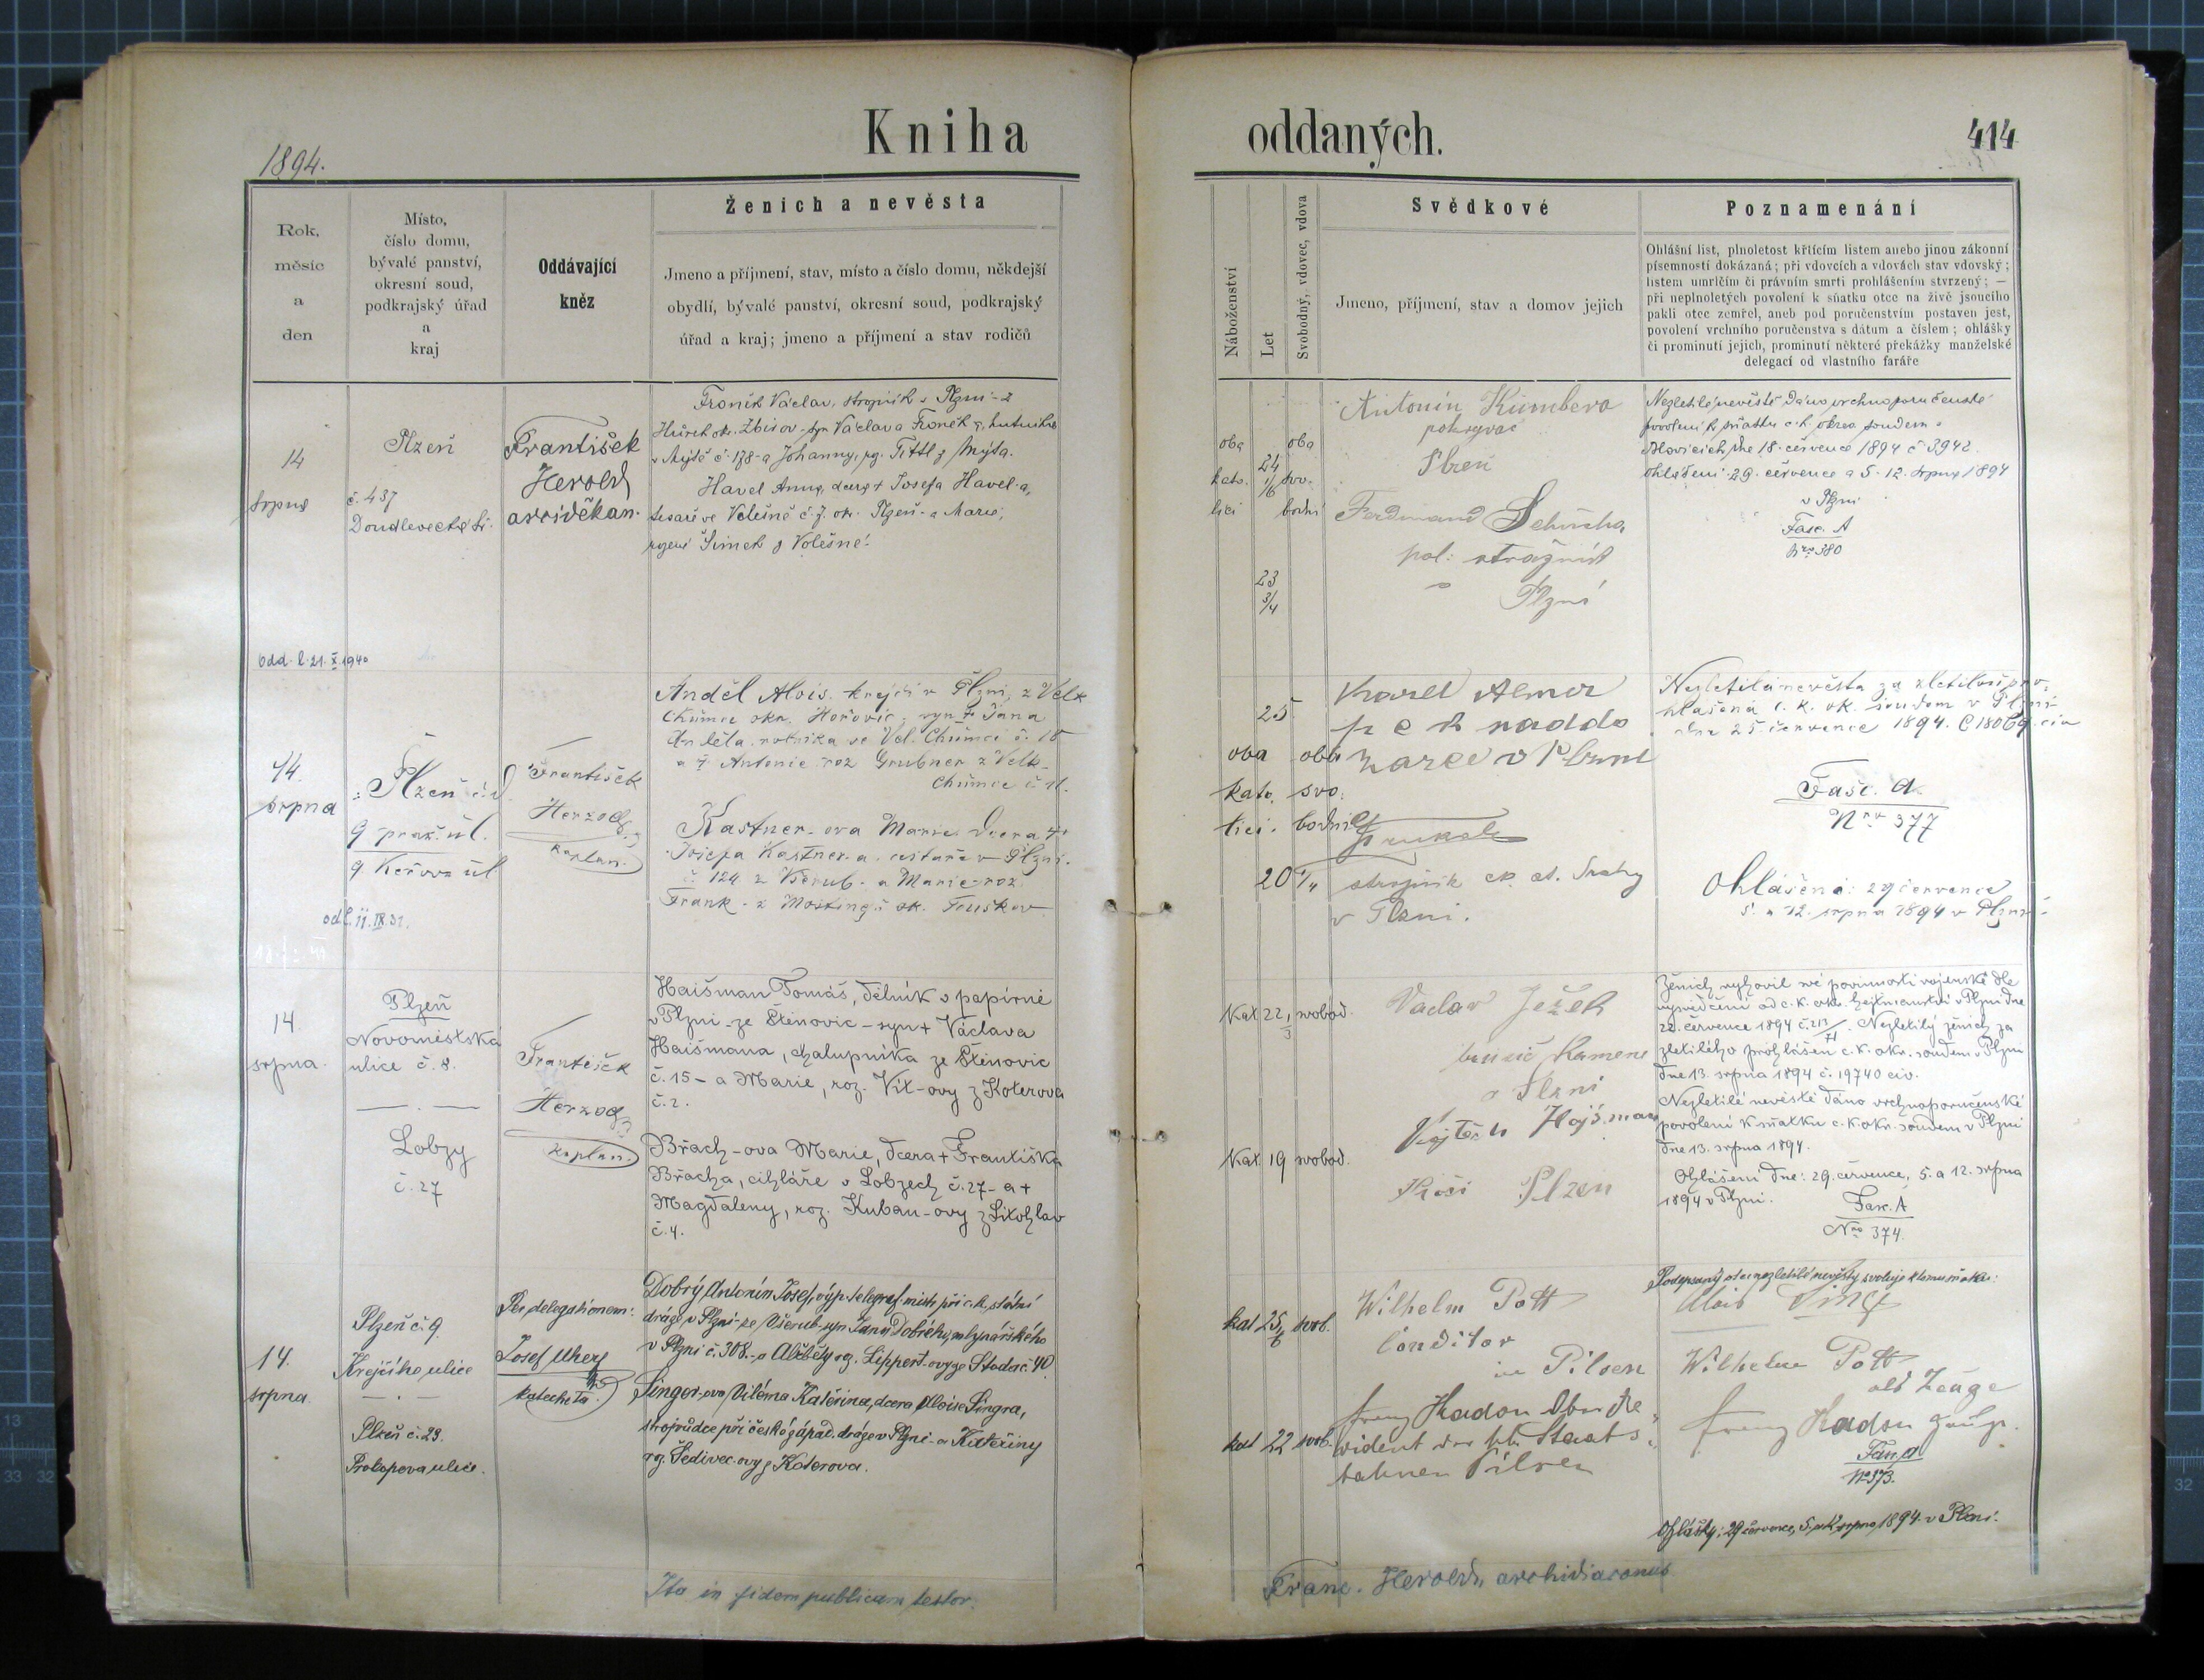 Kniha oddaných.
414
1894.
Rok,
měsíc
a
den
Místo,
číslo domu,
bývalé panství,
okresní soud,
podkrajský úřad
a
kraj
Oddávající
kněz
Ženich a nevěsta
Jmeno a příjmení, stav, místo a číslo domu, někdejší
obydlí, bývalé panství, okresní soud, podkrajský
úřad a kraj; jmeno a příjmení a stav rodičů
Náboženství
Let
Svobodný, vdovec, vdova
Svědkové
Jmeno, příjmení, stav a domov jejich
Poznamenání
Ohlášní list, plnoletost křticím listem anebo jinou zákonní
písemností dokázaná; při vdovcích a vdovách stav vdovský;
listem umrlčím či právním smrti prohlášením stvrzený; —
při neplnoletých povolení k sňatku otce na živě jsoucího
pakli otec zemřel, aneb pod poručenstvím postaven jest,
povolení vrchního poručenstva s dátum a číslem; ohlášky
či prominutí jejich, prominutí některé překážky manželské
delegací od vlastního faráře
14
srpna
Plzeň
č. 437
Doudlevecká tř.
František
Herold
arciděkan.
Froněk Václav, strojník v Plzni - z
okr. Zbirov - syn Václava Froněk
v Mýtě č. 178 - a Johanny, roz. Tittl z Mýta.
Havel Anna, dcera + Josefa Havel-a,
tesaře ve Volešně č. 7. okr. Plzeň - a Marie,
rozené Šimek z Volešné.
oba
kato.
lici
24
23
3/4
oba
svo.
bodni
Antonín
pokrývač
Plzeň
Ferdinand
pol. strážník
v Plzni
Nezletilé nevěstě dáno vrchnoporučenské
povolení k sňatku c. k. okres. soudem v
Blovicích dne 18. července 1894 č. 3942.
Ohlášeni 29. července a 5. 12. srpna 1894
v Plzni
Fasc. A
Nro 380
odd. l. 21. X. 1940
14.
srpna
Plzeň č. d.
9 praž. úl.
9 ul
František
Herzog,
kaplan.
Anděl Alois, krejčí v Plzni, z Velk
Chumce okr. Hořovic, syn + Jana
Anděla, rolníka ve Vel. Chumci č. 18
a + Antonie roz Grubner z Velk.
Chumce č. 11.
Kastner-ova Marie, dcera +
Josefa Kastner-a, cestaře v Plzni.
č. 124 z Všerub - a Marie roz.
Frank - z ok. Touškov
odd. l. 11. IX. 31.
25
oba
kato.
lici.
20
oba
svo.
bodni
Karel
p e k
v Plzni
strojník
v Plzni.
Nezletilá nevěsta za zletilou pro.
hlášená c. k. ok. soudem v Plzni
dne 25 července 1894.
Fasc. A.
Nro 377
Ohlášeni: 29 července
5. a 12. srpna 1894 v Plzni
14
srpna.
Plzeň
Novoměstská
ulice č. 8.
Lobzy
č. 27
František
Herzog,
kaplan.
Haišman Tomáš, dělník v papírně
v Plzni - ze Štěnovic - syn + Václava
Haišmana, chalupníka ze Štěnovic
č. 15 - a Marie, roz. Vít-ovy z Koterova
č. 2.
Břach-ova Marie, dcera + Františka
Břacha, cihláře v Lobzech č. 27 - a +
Magdaleny, roz. Kuban-ovy z Litohlav
č. 4.
Kat. 22 1/3 svobod.
Kat. 19 svobod.
Vaclav Ježek
brusič kamene
v Plzni
Vojtěch Hajšman
Plzen
Ženich vyhověl své povinnosti vojenské dle
vysvědčení od c. k. okr. hejtmanství v Plzni dne
22. července 1894 č. 213/. Nezletilý ženich za
zletilého prohlášen c. k. okr. soudem v Plzni
dne 13. srpna 1894 č. 19740 civ.
Nezletilé nevěstě dáno vrchnoporučenské
povolení k sňatku c. k. okr. soudem v Plzni
dne 13. srpna 1894.
Ohlášeni dne: 29. července, 5. a 12. srpna
1894 v Plzni.
Fasc. A
Nro 374.
14.
srpna.
Plzeň č. 9.
Krejčího ulice
Plzeň č. 23.
Prokopova ulice.
Per delegationem:
Josef Uherz
katecheta.
Dobrý Antonín Josef, výp. telegraf. mistr při c. k. státní
dráze v Plzni - ze Všerub - syn Jana Dobrého, mlynářského
v Plzni č. 308. - a Alžběty roz. Lippert-ovy ze Stoda č. 40.
Singer-ova Viléma Kateřina, dcera Aloise Singra,
strojvůdce při české západ. dráze v Plzni - a Kateřiny
roz. Šedivec-ovy z Koterova.
kat 25 svob.
kat 22 svob.
Wilhelm Pott
Conditor
in Pilsen
Franz Hadon Ober Re-
vident der kk. Staats-
bahnen Pilsen
Podepsaný otec nezletilé nevěsty svoluje k tomu sňatku:
Alois
Wilhelm Pott
als Zeuge
Franz Hadon
Fasc. A
No 373.
Ohlášky: 29 července, 5. a 12. srpna 1894. v Plzni.
Ita in fidem publicam testor.
Franc. Herold, archidiaconus